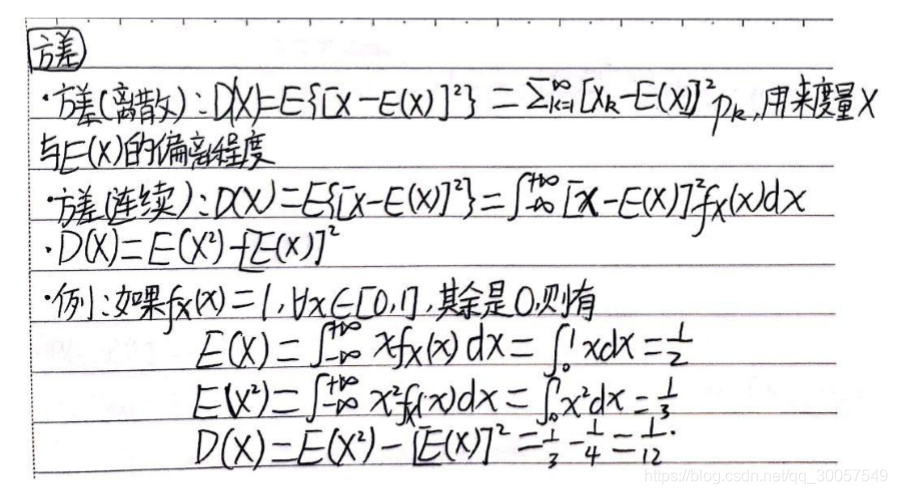 方差
·方差(离散):D(X)=E{[X-E(X)]²}=Σ_{k=1}^{∞}[x_k-E(X)]²p_k,用来度量X
与E(X)的偏离程度
·方差(连续):D(X)=E{[X-E(X)]²}=∫_{-∞}^{+∞}[x-E(X)]²f_X(x)dx
·D(X)=E(X²)-[E(X)]²
·例:如果f_X(x)=1,∀x∈[0,1],其余是0,则有
E(X)=∫_{-∞}^{+∞}xf_X(x)dx=∫_0^1xdx=1/2
E(X²)=∫_{-∞}^{+∞}x²f_X(x)dx=∫_0^1x²dx=1/3
D(X)=E(X²)-[E(X)]²=1/3-1/4=1/12.
https://blog.csdn.net/qq_30057549